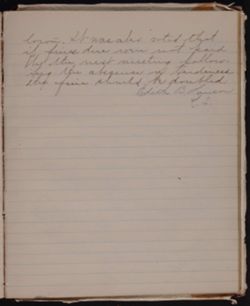 town. It was also voted that
if fines due were not paid
by the next meeting follow-
ing the absence or tardiness
the fine should be doubled.
Edith B.